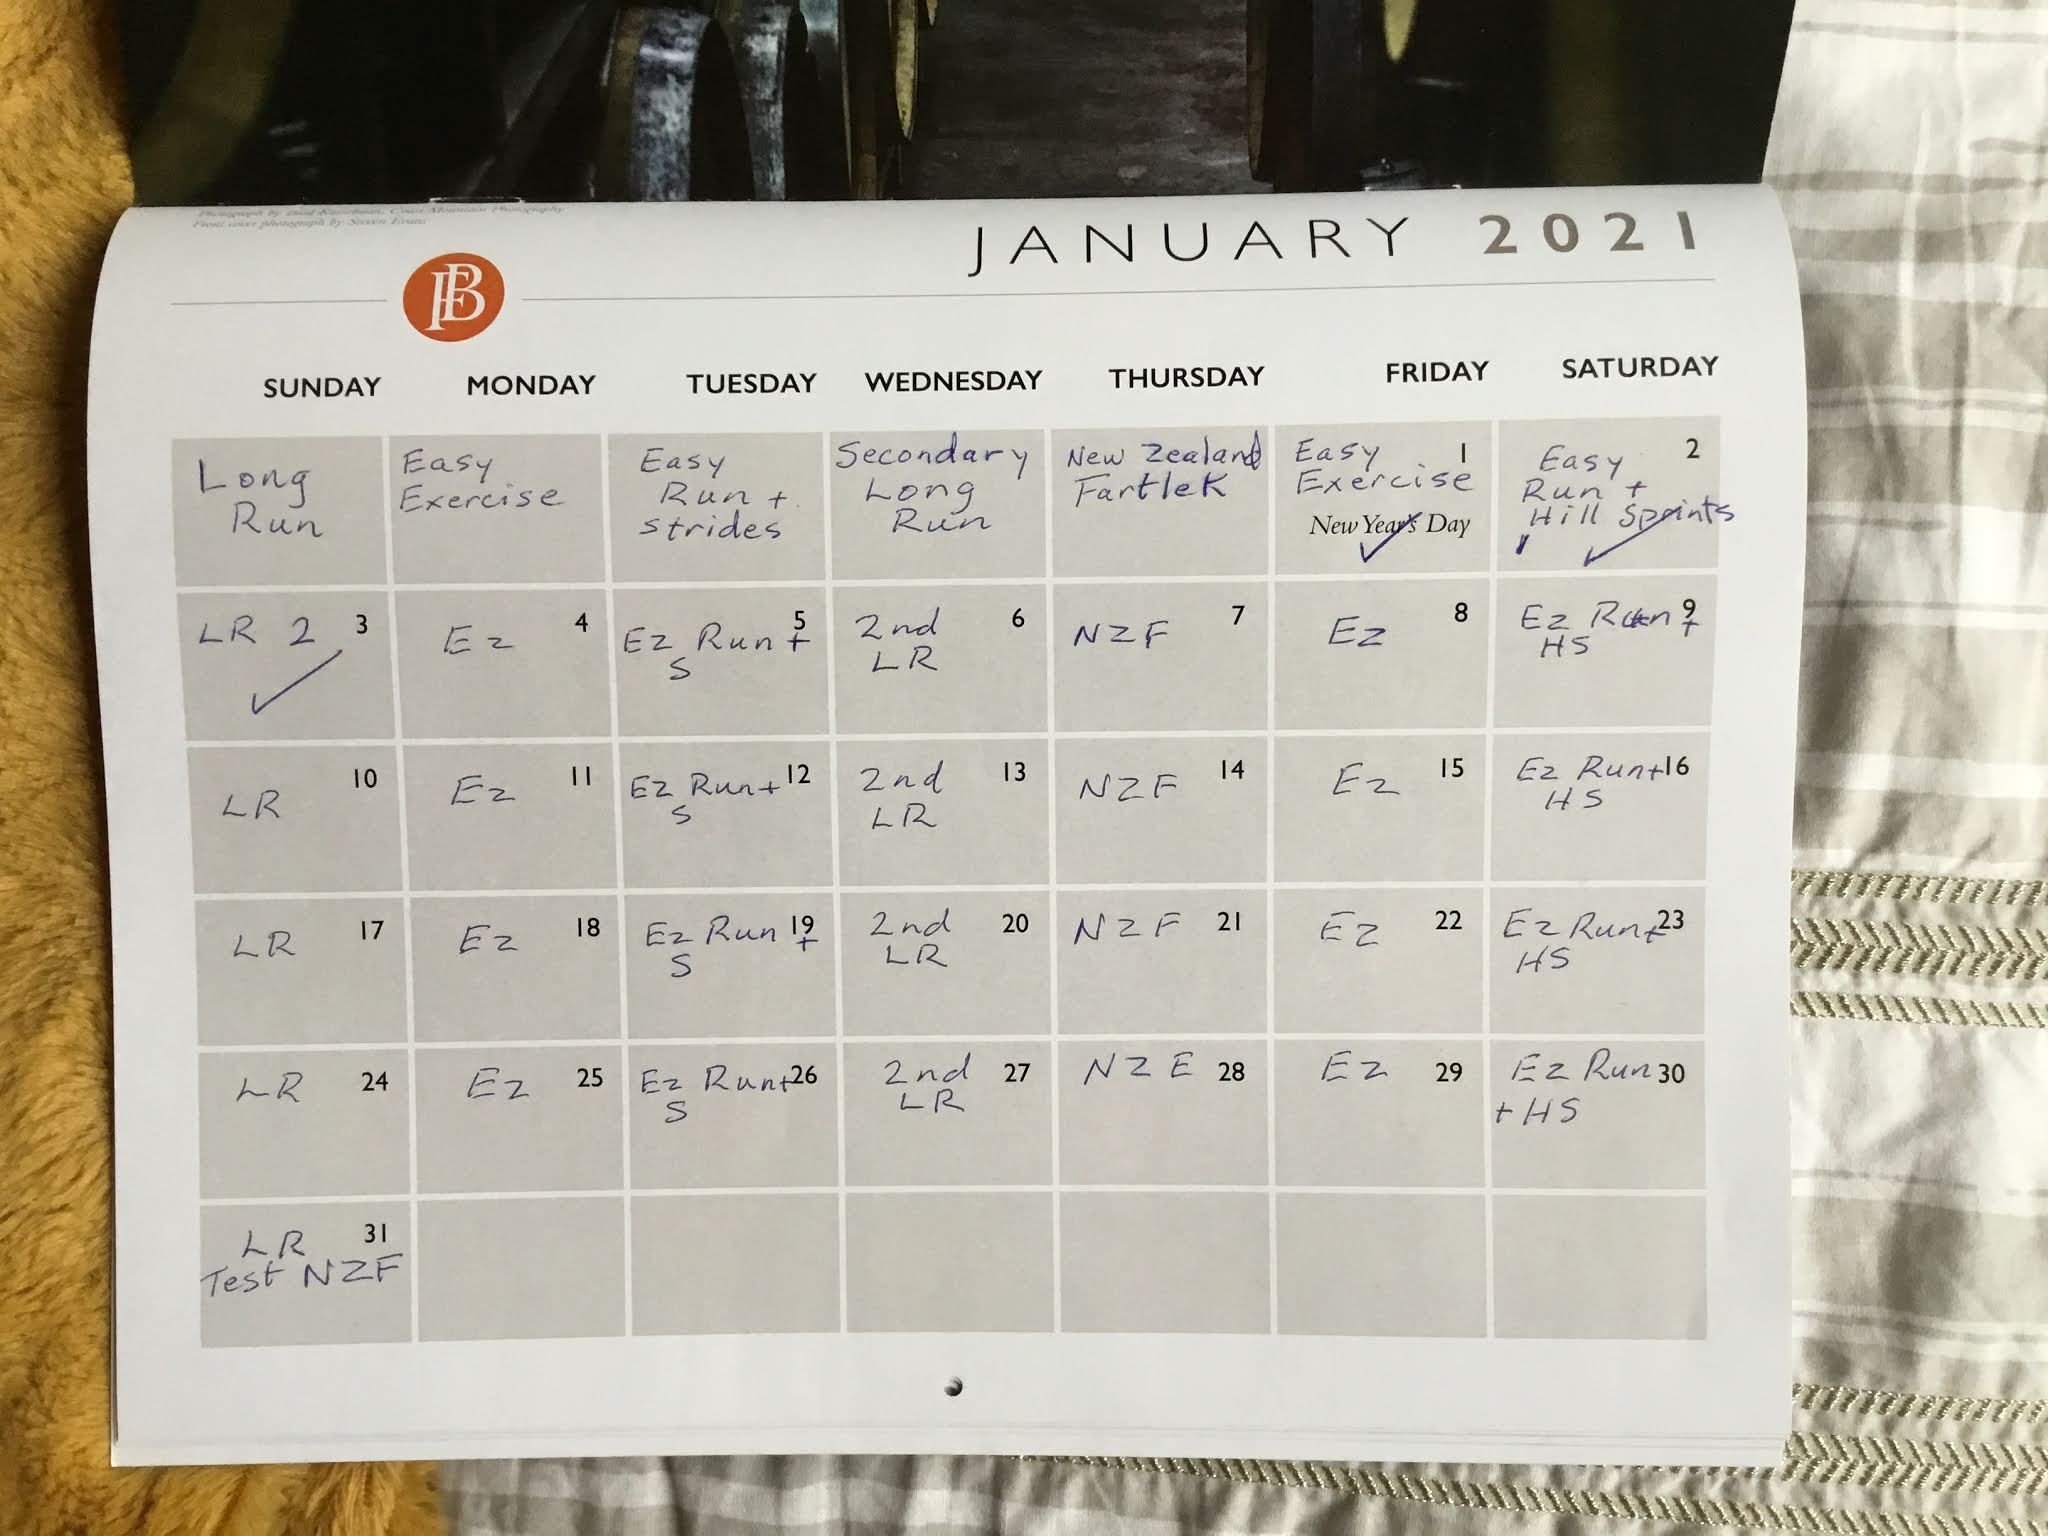 Photograph by Paul Kasselman, Coast Mountain Photography
Front cover photograph by Steven Evans
JANUARY 2021
SUNDAY MONDAY TUESDAY WEDNESDAY THURSDAY FRIDAY SATURDAY
Long
Run
Easy
Exercise
Easy
Run +
strides
Secondary
Long
Run
New Zealand
Fartlek
Easy 1
Exercise
New Year's Day
Easy 2
Run +
Hill Sprints
LR 2 3
Ez 4
5
Ez Run +
S
2nd 6
LR
NZF 7
Ez 8
Ez Run + 9
HS
10
LR
Ez 11
Ez Run + 12
S
2nd 13
LR
NZF 14
Ez 15
Ez Run + 16
HS
LR 17
Ez 18
Ez Run + 19
S
2nd 20
LR
NZF 21
Ez 22
Ez Run + 23
HS
LR 24
Ez 25
Ez Run + 26
S
2nd 27
LR
NZE 28
Ez 29
Ez Run 30
+ HS
LR 31
Test NZF